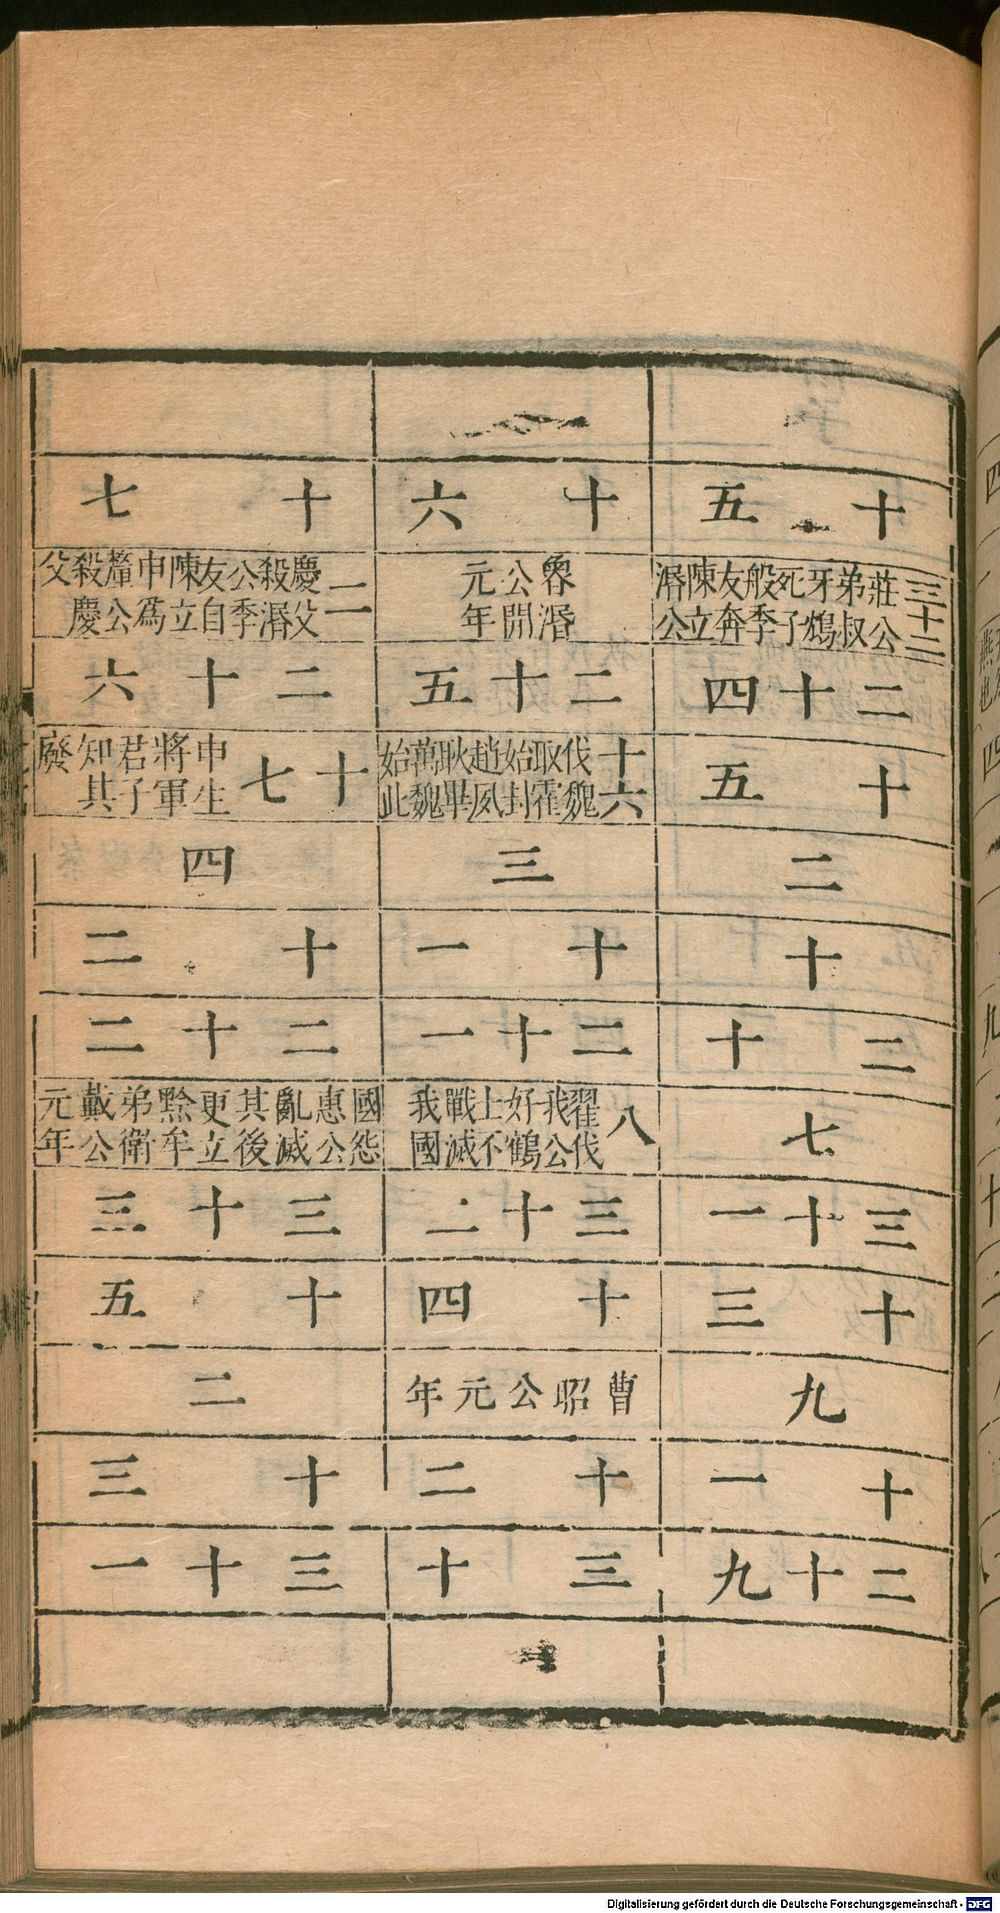 十五
三十二 莊公弟叔牙鴆死子般季友奔陳立湣公
二十四
十五
二
十
二十
七
三十一
十三
九
十一
二十九
十六
魯湣公開元年
二十五
十六 伐魏取霍始封趙夙耿畢萬魏始此
三
十一
二十一
八 翟伐我公好鶴上不戰滅我國
三十二
十四
曹昭公元年
十二
三十
十七
二 慶父殺湣公季友自陳立申爲釐公殺慶父
二十六
十七 申生將軍君子知其廢
四
十二
二十二
國怨惠公亂滅其後更立黔牟弟衛戴公元年
三十三
十五
二
十三
三十一
Digitalisierung gefördert durch die Deutsche Forschungsgemeinschaft - DFG